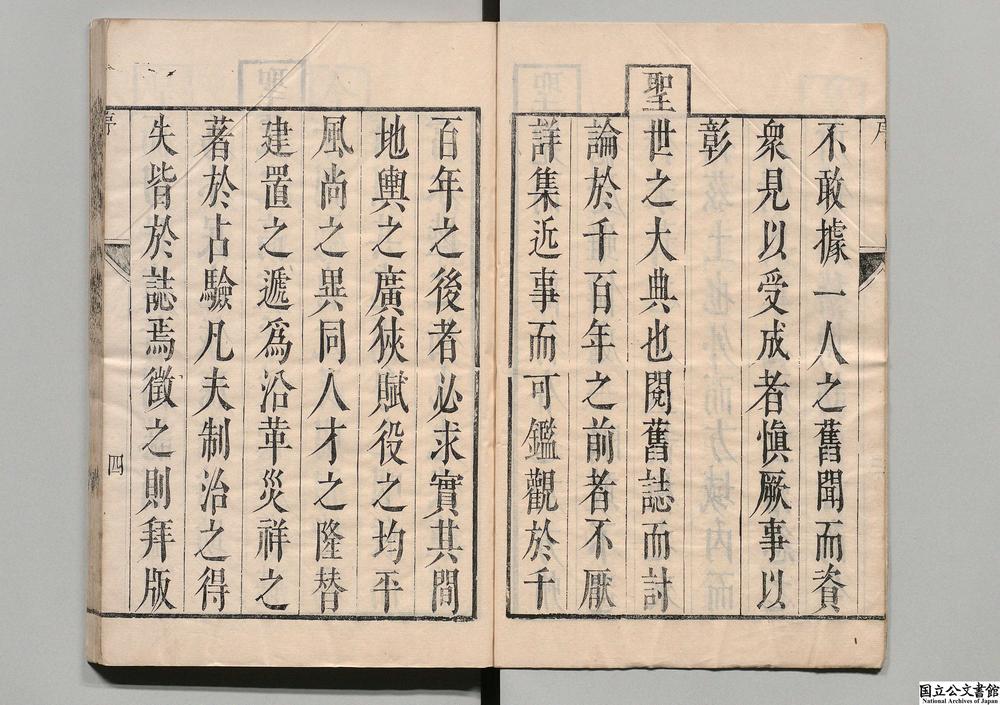 不敢據一人之舊聞而資
衆見以受成者愼厥事以
彰
聖世之大典也閱舊誌而討
論於千百年之前者不厭
詳集近事而可鑑觀於千
百年之後者必求實其間
地輿之廣狹賦役之均平
風尚之異同人才之隆替
建置之遞爲沿革災祥之
著於占驗凡夫制治之得
失皆於誌焉徵之則拜版
四
国立公文書館
National Archives of Japan